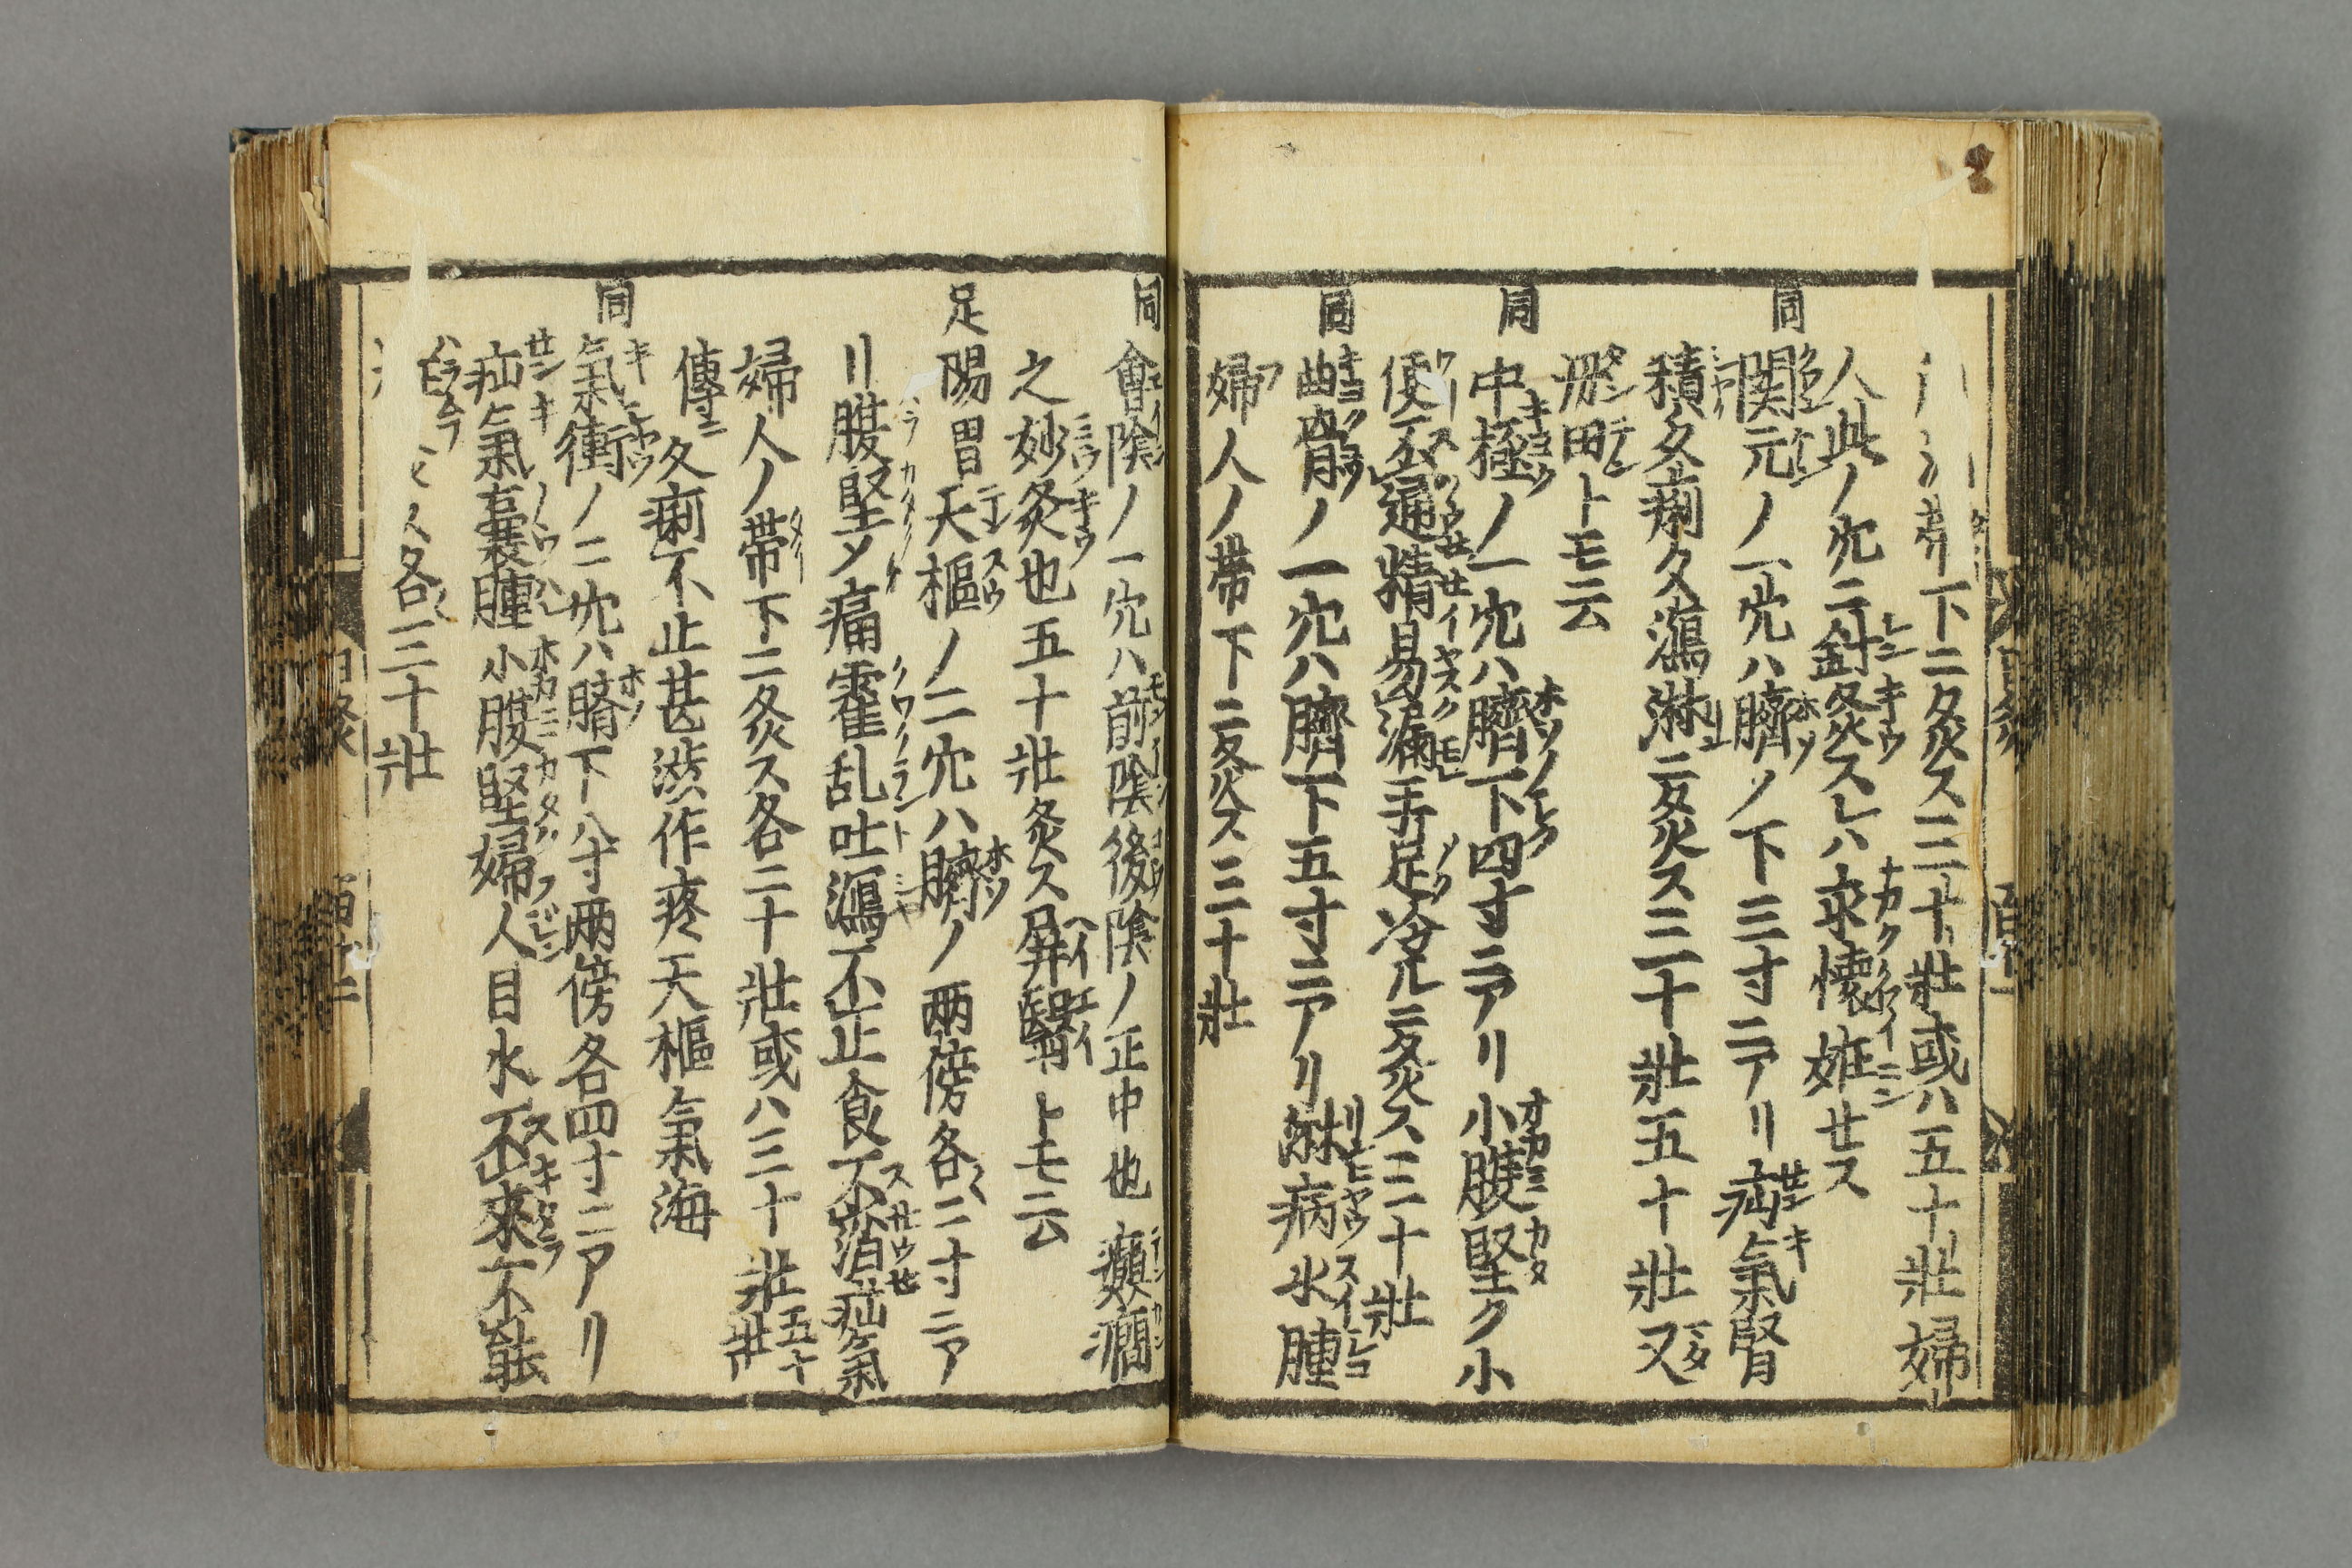 下ニ灸ス三十壯或ハ五十壯婦
人此ノ穴ニ針灸スレハ永懐妊せス
同 関元ノ一穴ハ臍ノ下三寸ニアリ疝氣腎
積久痢久瀉淋ニ灸ス三十壯五十壯又
丹田トモ云
同 中極ノ一穴ハ臍下四寸ニアリ小腹堅ク小
便不通精易漏手足冷ルニ灸ス三十壯
同 曲骨ノ一穴ハ臍下五寸ニアリ淋病水腫
婦人ノ帯下ニ灸ス三十壯
同 會陰ノ一穴ハ前陰後陰ノ正中也癲癇
之妙灸也五十壯灸ス屏翳トモ云
足陽胃 天樞ノ二穴ハ臍ノ両傍各二寸ニア
リ腹堅メ痛霍乱吐瀉不止食不消疝氣
婦人ノ帯下ニ灸ス各二十壯或ハ三十壯五十壯
傳ニ 久痢不止甚渋作疼天樞氣海
同 氣衝ノ二穴ハ臍下八寸両傍各四寸ニアリ
疝氣嚢腫小腹堅婦人目水不來不能
各三十壯